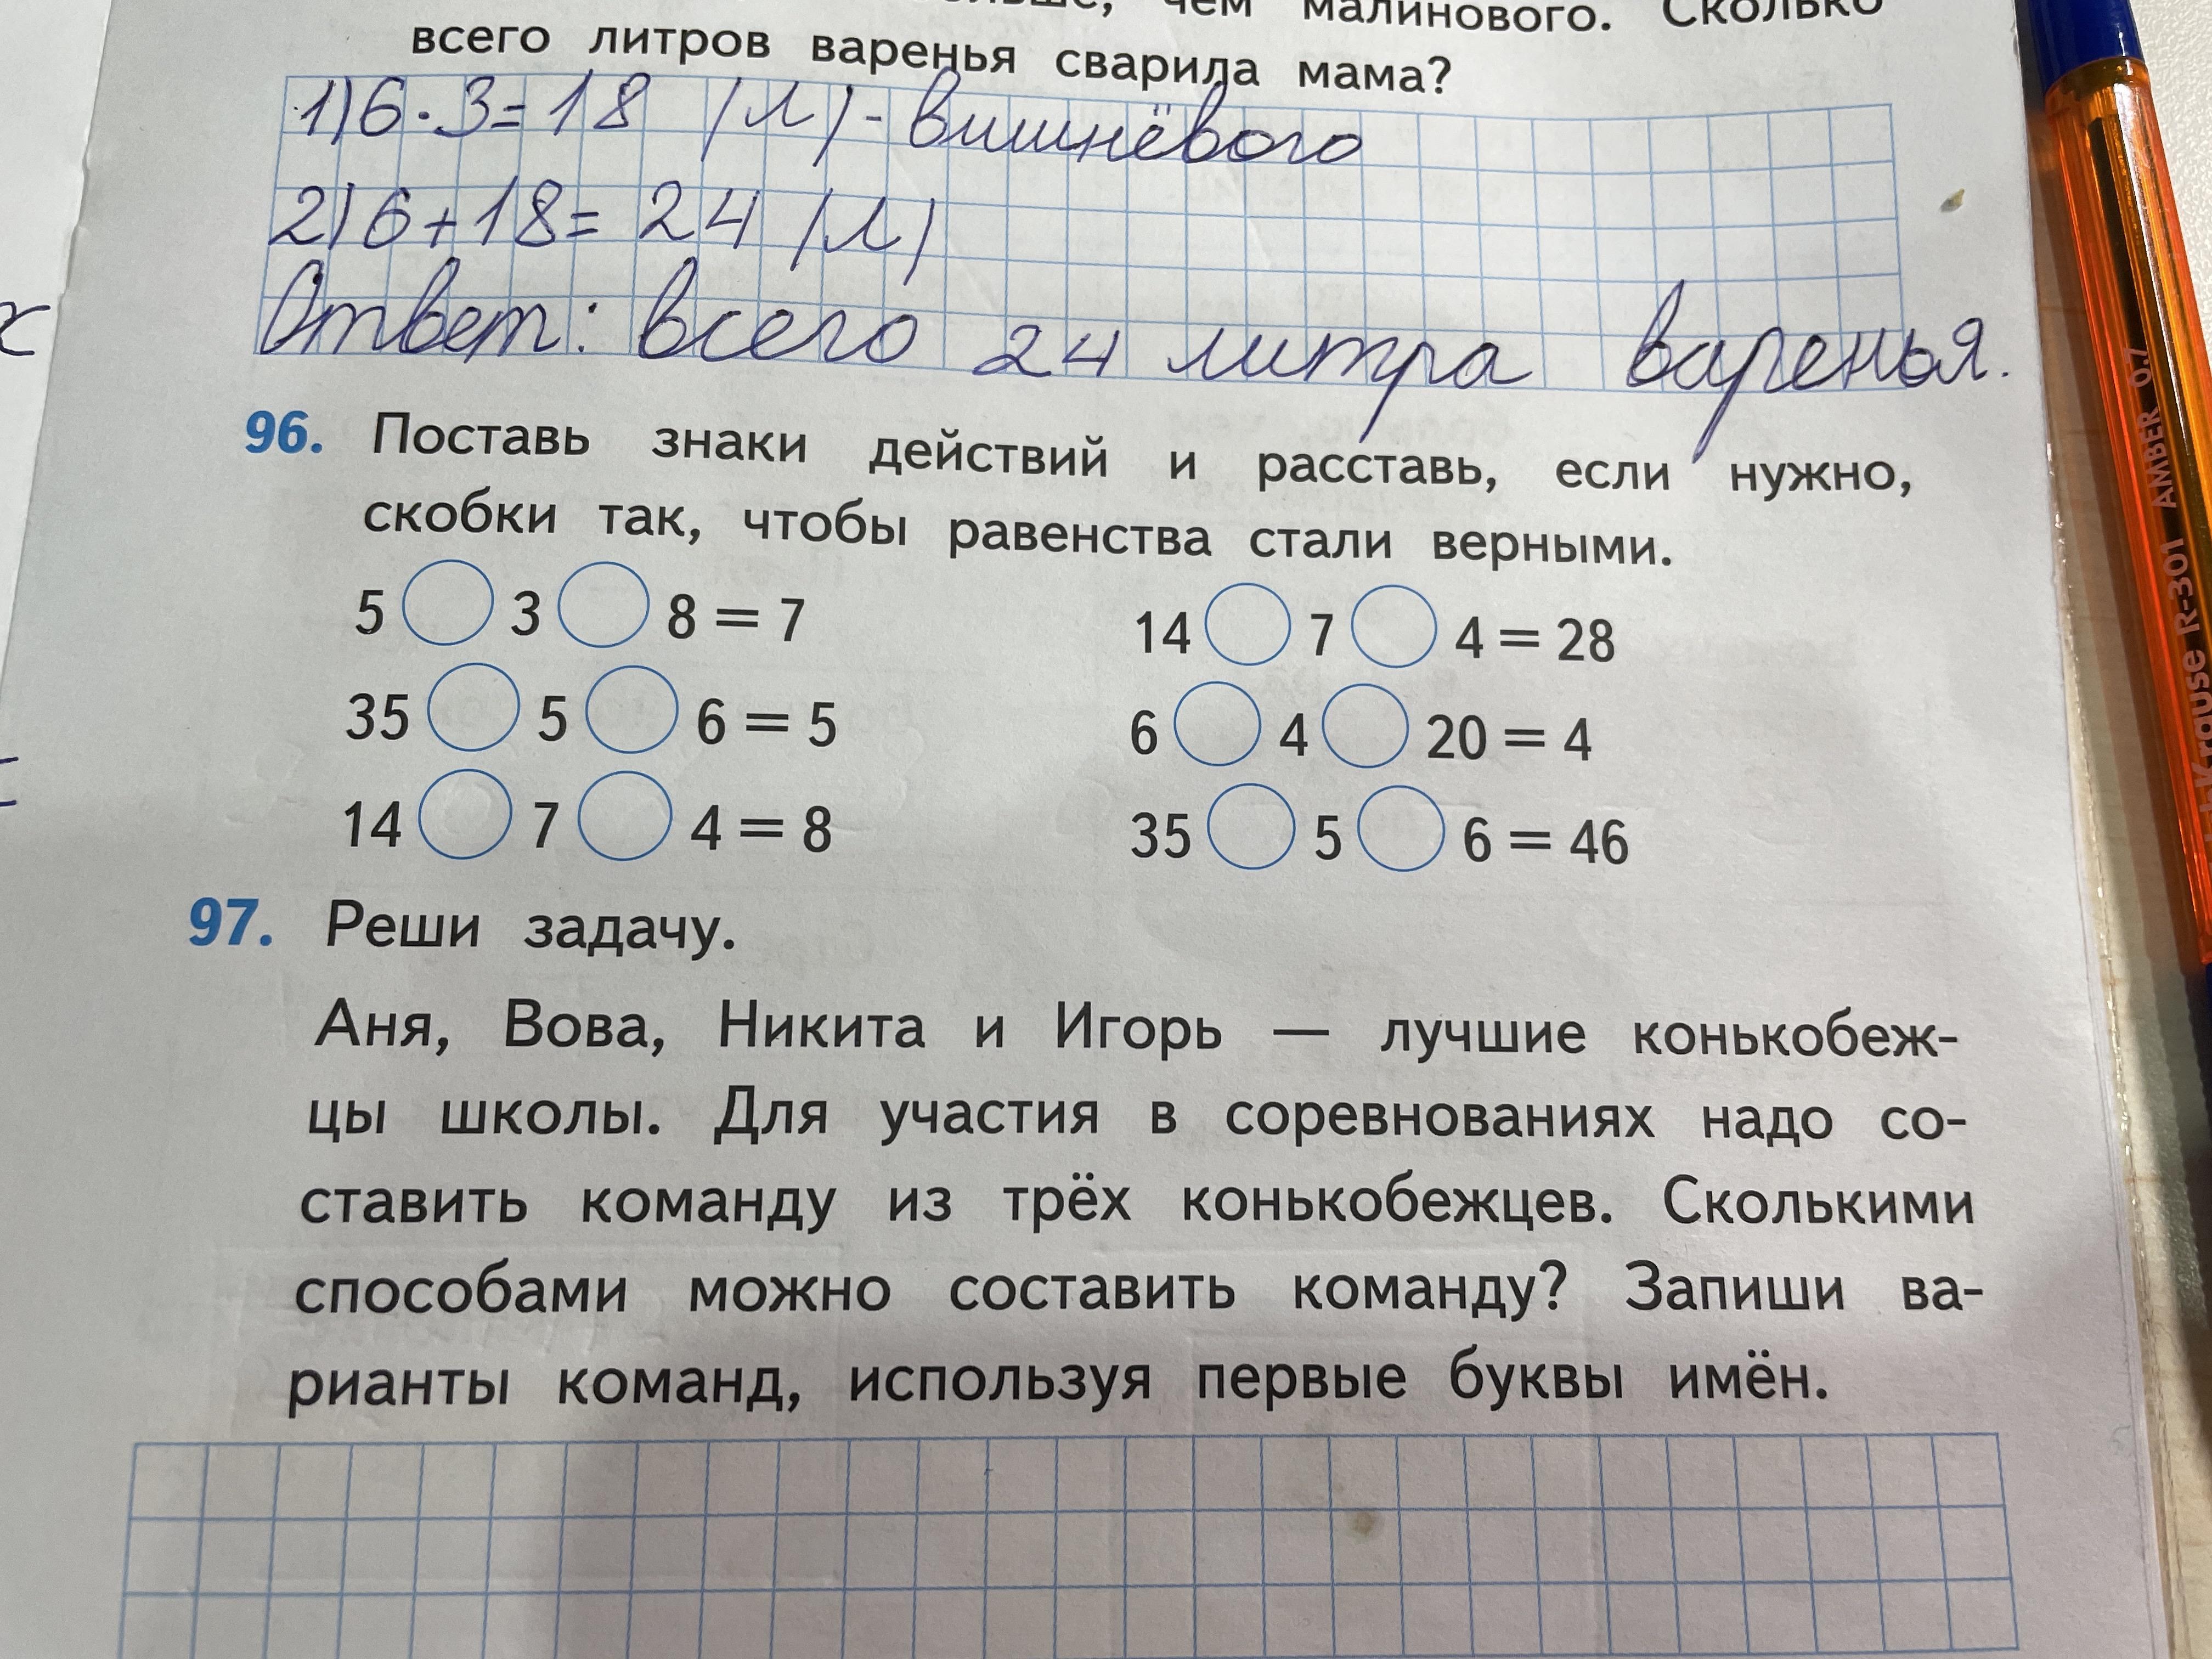 чем малинового. Сколько
всего литров варенья сварила мама?
1) 6 · 3 = 18 (л) - вишнёвого
2) 6 + 18 = 24 (л)
Ответ: всего 24 литра варенья.
96. Поставь знаки действий и расставь, если нужно,
скобки так, чтобы равенства стали верными.
5 ◯ 3 ◯ 8 = 7
14 ◯ 7 ◯ 4 = 28
35 ◯ 5 ◯ 6 = 5
6 ◯ 4 ◯ 20 = 4
14 ◯ 7 ◯ 4 = 8
35 ◯ 5 ◯ 6 = 46
97. Реши задачу.
Аня, Вова, Никита и Игорь — лучшие конькобеж-
цы школы. Для участия в соревнованиях надо со-
ставить команду из трёх конькобежцев. Сколькими
способами можно составить команду? Запиши ва-
рианты команд, используя первые буквы имён.
Krause R-301 AMBER 0.7